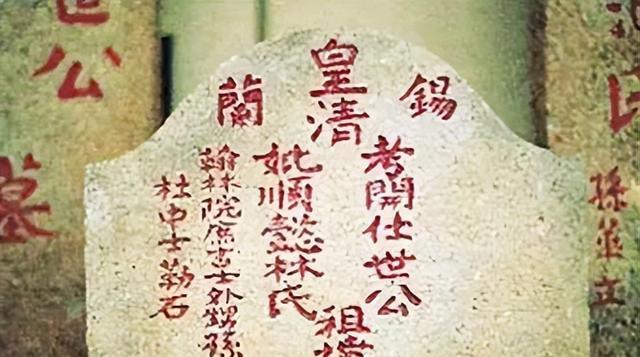 孫華立
錫蘭
皇清
考開仕世公
妣順懿林氏
祖
翰林院庶吉士外甥孫
杜申士勒石
世公
墓